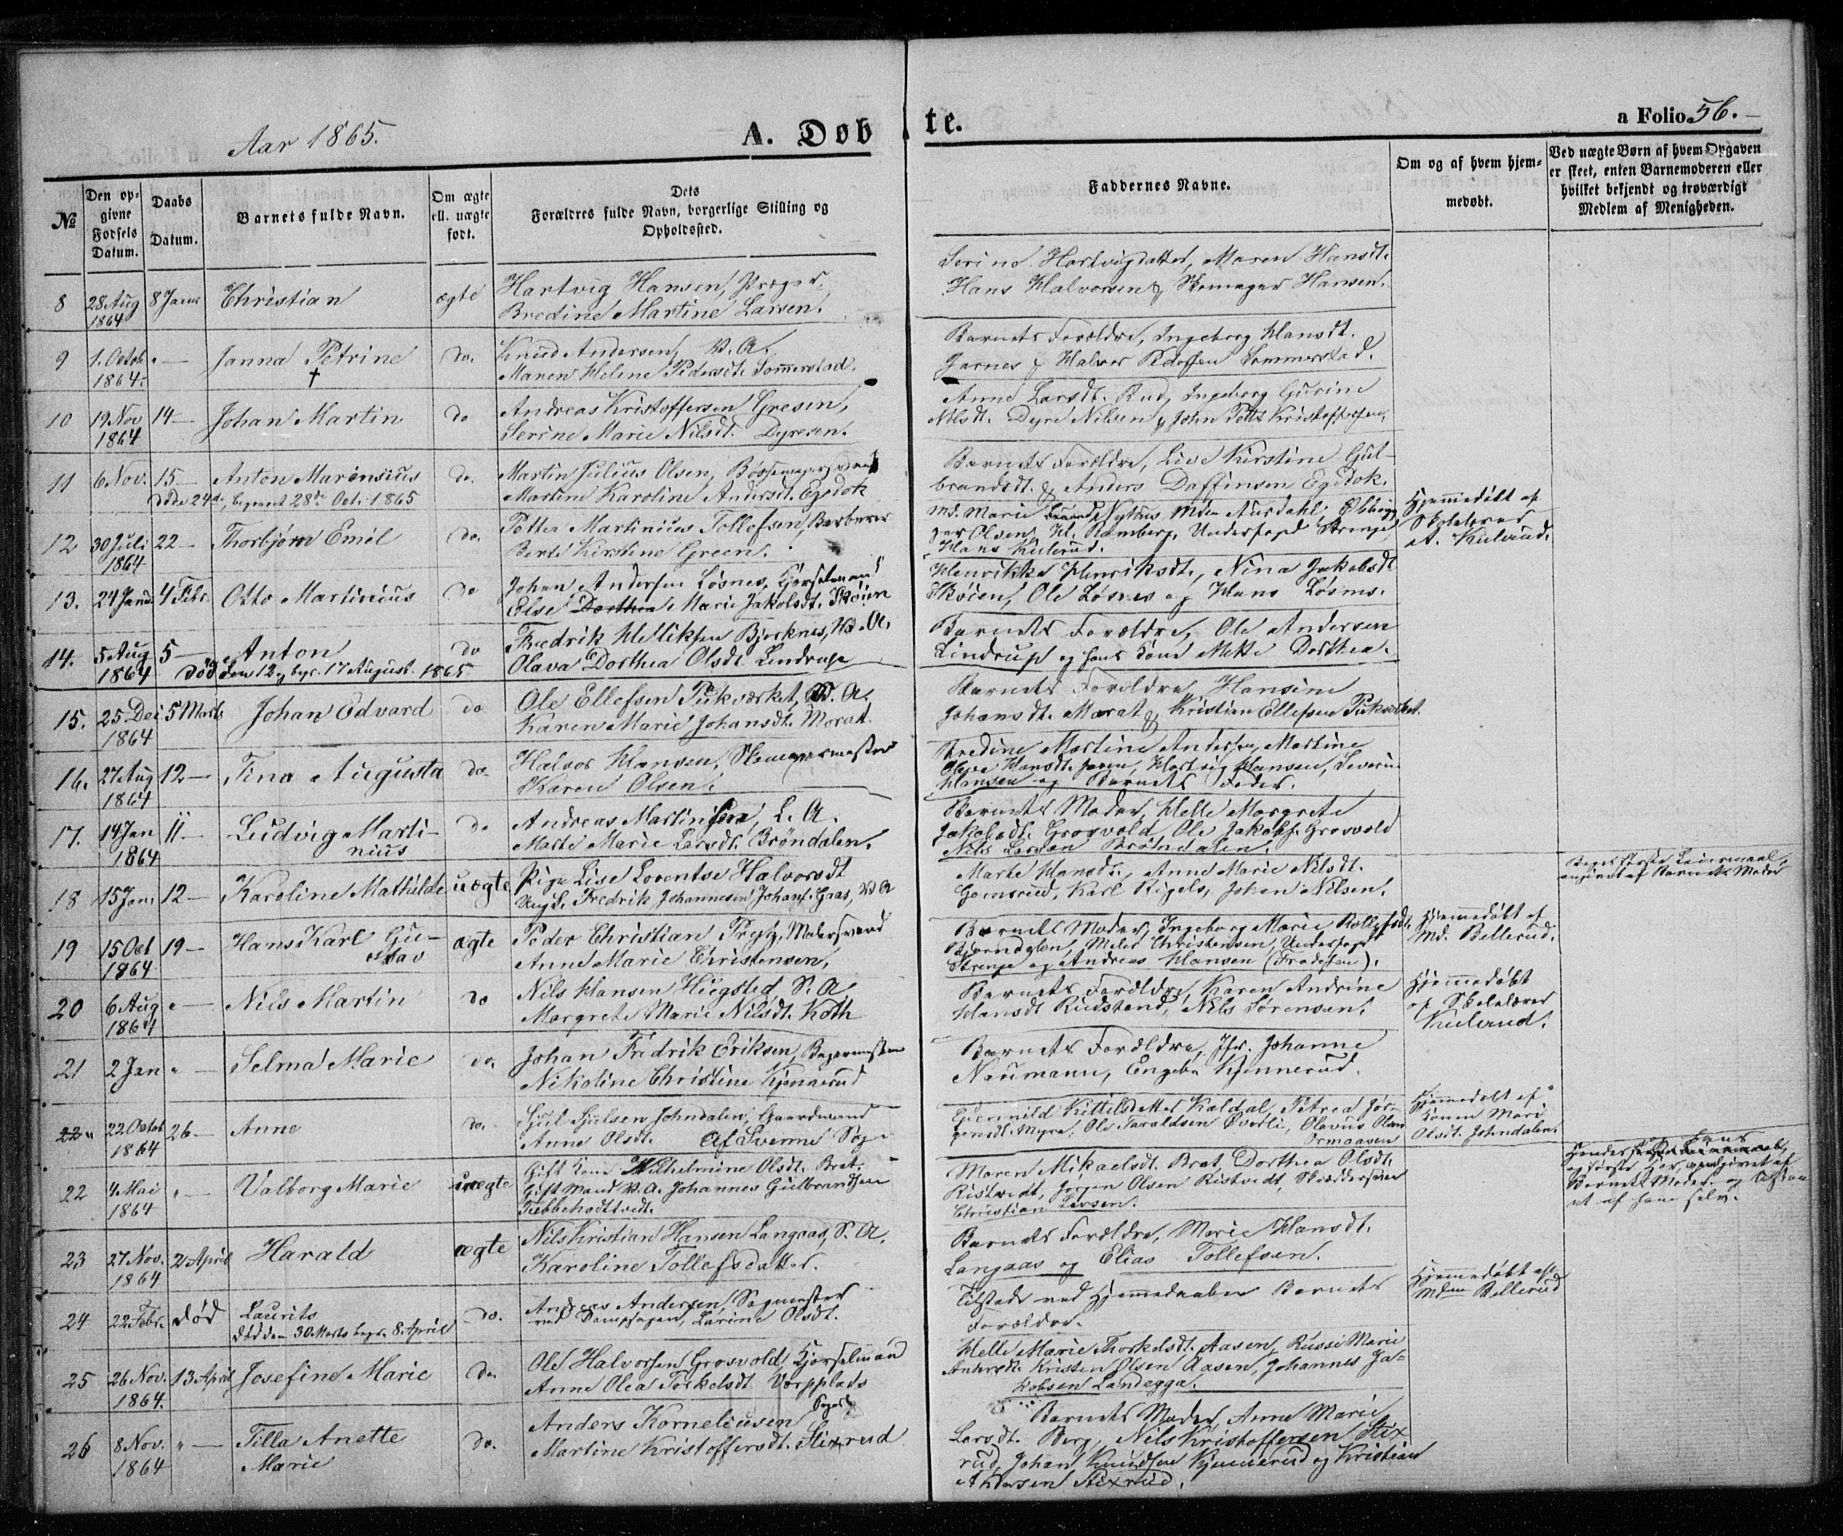 Aar 1865.
A. Døbte.
a Folio 56.
№
Den opgivne Fødsels Datum.
Daabs Datum.
Barnets fulde Navn.
Om ægte ell. uægte født.
Dets Forældres fulde Navn, borgerlige Stilling og Opholdssted.
Faddernes Navne.
Om og af hvem hjemmedøbt.
Ved uægte Børn af hvem Opgaven er skeet, enten Barnemoderen eller hvilket bekjendt og troværdigt Medlem af Menigheden.
8 28 Aug 1864 8 Janr Christian ægte
Hartvig Hansen,
Bredine Martine Larsen.
Hartvigdatter, Maren Hansdt.
Hans Halvorsen & Skomager Hansen.
9 1. Octob 1864. " — Janna Petrine † do.
Knud Andersen, B. A.
Maren Helene Pedersdt. Sommerstad.
Barnets Forældre, Ingeborg Hansdt.
Jarnes & Halvor Sommerstad.
10 19 Nov 1864 14 — Johan Martin do
Andreas Kristoffersen Gresen,
Serine Marie Nilsdt. Dyresen.
Anne Larsdt. Rud, Ingeborg Gurine
Nilsdt. Dyre Nilsen & John Kristoffersen,
11 6 Nov. 15 — Anton Marensius do.
Døde 24de, begravet 28de Oct. 1865
Martin Julius Olsen, Bøssemager
Martine Karoline Andersdt. Egedok
Barnets Forældre, Live Kirstine Gul-
brandsdt. & Anders Daffinsen Egedok.
12 30 Juli 1864 22 — Thorbjørn Emil do.
Petter Martinius Tollefsen, Barberer
Berte Kirstine Green.
Md. Marie Nythus, Mdm Aurdahl,
Olsen, Kl. Ramberg, Underfoged Strenge,
Hans Kulerud.
Hjemmedøbt af
Skolelærer
A. Kulerud.
13. 24 Janr 4 Febr. Otto Martinius do
Johan Andersen Løsnes, Kjørselmand
Else Dorthea Marie Jakobsdt. Skøien
Henrikke Henriksdt., Nina Jakobsdt
Skøien, Ole Løsnes og Hans Løsnes.
14. 5 Aug 1864 5 — Anton do
Død den 12 og begr. 17 August. 1865
Fredrik Helliksen Bjerknes, B. A.
Olava Dorthea Olsdt Lindrup
Barnets Forældre, Ole Andersen
Lindrup og hans Kone Mette Dorthea.
15. 25 Dec 1864 5 Marts Johan Edvard do
Ole Ellefsen Pukværket, B. A.
Karen Marie Johansdt. Morat.
Barnets Forældre, Hansine
Johansdt. Morat & Kristian Ellefsen Pukverket.
16. 27 Aug 1864 12 — Tina Augusta do.
Halvor Hansen, Skomagermester
Karen Olsen.
Bredine Martine Andersen, Martine
Hansdt. Hartvig Hansen, Severin
Hansen og Barnets Fader.
17. 14 Jan 1864 11 — Ludvig Marti-
nius do
Andreas Martinsen, L. A.
Marte Marie Larsdt. Brøndalen.
Barnets Moder, Helle Margrete
Jakobsdt. Grosvold, Ole Jakobs. Grosvold
Nils Larsen Brøndalen.
18 15 Jan. 12 — Karoline Mathilde uægte
Pige Lise Lorentse Halvorsdt
Ungk. Fredrik Johannesen Johans. Gaas, B. A
Marte Hansdt., Anne Marie Nilsdt.
Gomsrud, Karl Rigels, Johan Nilsen.
Begges første Leiermaal,
angivet af Barnets Moder
19 15 Oct 1864 19 — Hans Karl Gu-
stav ægte
Peder Christian
Anne Marie Christensen.
Barnets Moder, Ingeborg Marie
Christensen, Underfoged
Strenge og Andreas Hansen
Hjemmedøbt af
Md. Bellerud.
20 6 Aug 1864 " — Nils Martin do
Nils Hansen Hiegsted, S. A.
Margrete Marie Nilsdt. Koth
Barnets Forældre, Karen Andrine
Hansdt Rudstand, Nils Sørensen.
Hjemmedøbt
af Skolelærer
Kulerud.
21 2 Jan " — Selma Marie do.
Johan Fredrik Eriksen, Bagermester
Nikoline Christine Kjennerud
Barnets Forældre, Jfr. Johanne
Naumann, Engebr. Kjennerud.
22 22 Octob 1864 26 — Anne do.
Gjul Gjulsen Johndalen, Gaardmand
Anne Olsdt. Af Svenne Sogn
Gunnild Kittilsdatter Kaldal, Petrea Jør-
gensdt. Myra, Ole Taraldsen Øverli, Olavus Olsen
Ormaasen
Hjemmedøbt af
Konen Mari
Olsdt. Johndalen.
22 4 Mai 1864 " — Valborg Marie uægte
Gift Kone Wilhelmine Olsdt. Brat.
Gift Mand B. A. Johannes Gulbrandsen
Maren Mikaelsdt. Brat, Dorthea Olsdt.
Ristvedt, Jørgen Olsen Ristvedt, Skræddersvend
Christian Larsen.
Hendes
og første Hor, angivet af
Barnets Moder
af ham selv.
23 27 Nov. 1864 2 April Harald ægte
Nils Kristian Hansen Langaas, S. A.
Karoline Tollefsdatter.
Barnets Forældre, Marie Hansdt.
Langaas og Elias Tollefsen.
24 22 Febr. død Laurits do.
død den 30 Marts begr. 8 April
Andreas Andersen, Sagmester
ved Dampsagen, Larine Olsdt.
Tilstede ved Hjemmedaaben Barnets
Forældre.
Hjemmedøbt af
Mdm Bellerud
25 26 Nov. 1864. 13 April Josefine Marie do.
Ole Halvorsen Grosvold, Kjørselmand
Anne Olea Torkelsdt Værpplads
Helle Marie Thorkelsdt. Aasen, Russe Marie
Andersdt. Kristen Olsen Aasen, Johannes Ja-
kobsen Landegga.
26 8 Nov. 1864 " — Tilla Anette
Marie do.
Anders Korneliusen
Martine Kristoffersdt. Stixrud
Barnets Moder, Anne Marie
Larsdt. Berg, Nils Kristoffersen Stix
rud, Johan Knudsen Kjennerud og Kristian
Andersen Stixrud.